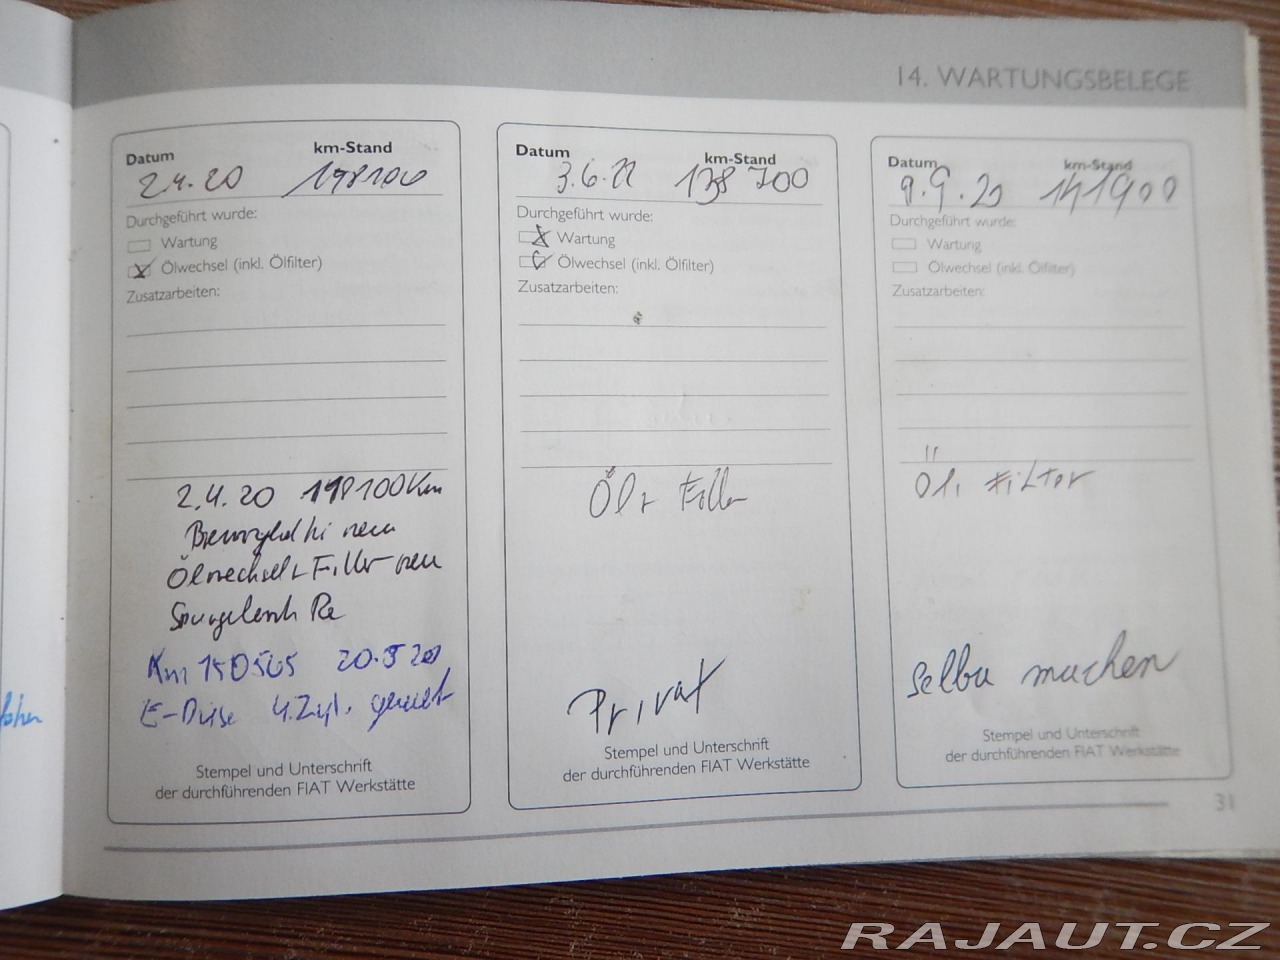 14. WARTUNGSBELEGE
Datum km-Stand
2.4.20 198100
Durchgeführt wurde:
Wartung
x Ölwechsel (inkl. Ölfilter)
Zusatzarbeiten:
2.4.20 198100 Km
neu
Ölwechsel + Filter neu
Km 150505 20.5 20
E-Düse 4. Zyl.
Stempel und Unterschrift
der durchführenden FIAT Werkstätte
Datum km-Stand
3.6.22 138 700
Durchgeführt wurde:
x Wartung
Ölwechsel (inkl. Ölfilter)
Zusatzarbeiten:
Öl + Filter
Privat
Stempel und Unterschrift
der durchführenden FIAT Werkstätte
Datum km-Stand
9.9.23 141900
Durchgeführt wurde:
Wartung
Ölwechsel (inkl. Ölfilter)
Zusatzarbeiten:
Öl, Filter
Selba machen
Stempel und Unterschrift
der durchführenden FIAT Werkstätte
31
RAJAUT.CZ